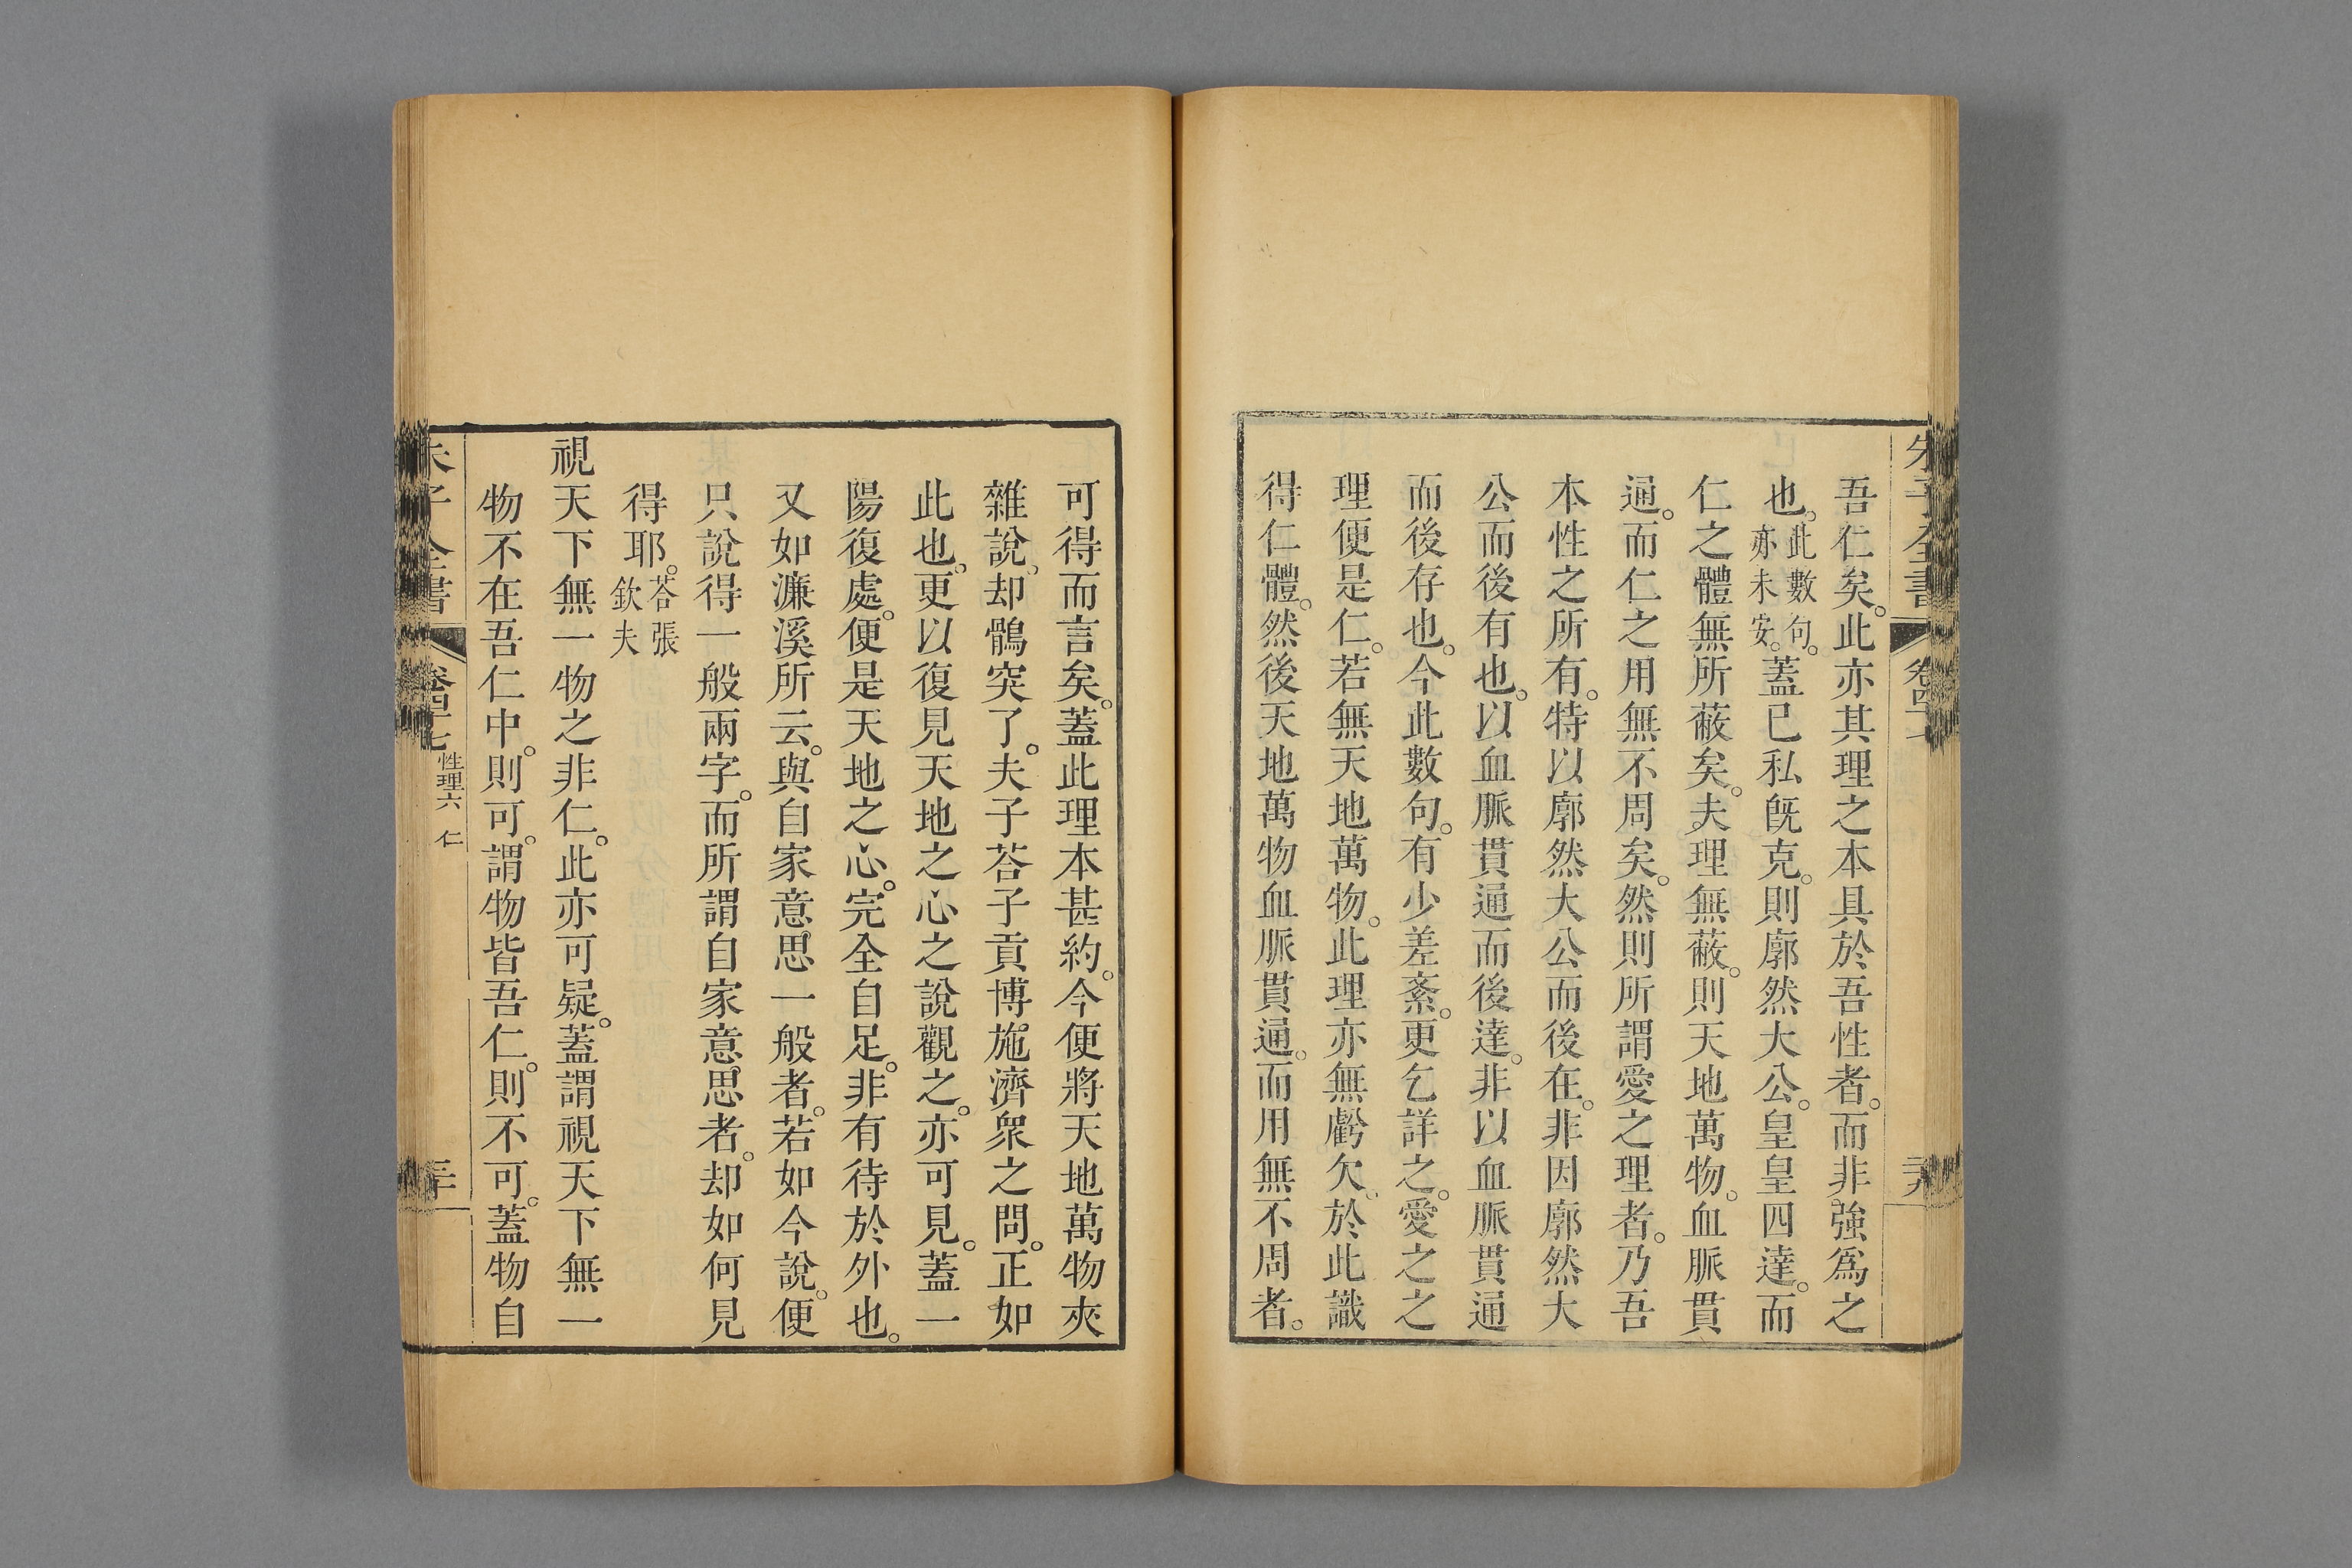 吾仁矣。此亦其理之本具於吾性者。而非強爲之
也。此數句。亦未安。蓋已私旣克。則廓然大公。皇皇四達。而
仁之體無所蔽矣。夫理無蔽。則天地萬物。血脈貫
通。而仁之用無不周矣。然則所謂愛之理者。乃吾
本性之所有。特以廓然大公而後在。非因廓然大
公而後有也。以血脈貫通而後達。非以血脈貫通
而後存也。今此數句。有少差紊。更乞詳之。愛之之
理便是仁。若無天地萬物。此理亦無虧欠。於此識
得仁體。然後天地萬物血脈貫通。而用無不周者。
可得而言矣。蓋此理本甚約。今便將天地萬物夾
雜說。却鶻突了。夫子荅子貢博施濟衆之問。正如
此也。更以復見天地之心之說觀之。亦可見。蓋一
陽復處。便是天地之心。完全自足。非有待於外也。
又如濂溪所云。與自家意思一般者。若如今說。便
只說得一般兩字。而所謂自家意思者。却如何見
得耶。荅張欽夫
視天下無一物之非仁。此亦可疑。蓋謂視天下無一
物不在吾仁中。則可。謂物皆吾仁。則不可。蓋物自
朱子全書
卷四十七
性理六 仁